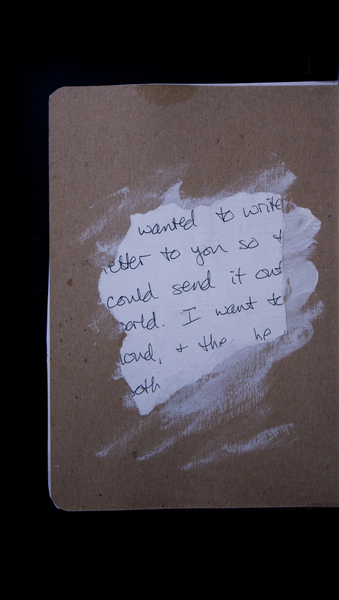 wanted to write
etter to you so t
could send it out
orld. I want to
loud, + the he
oth